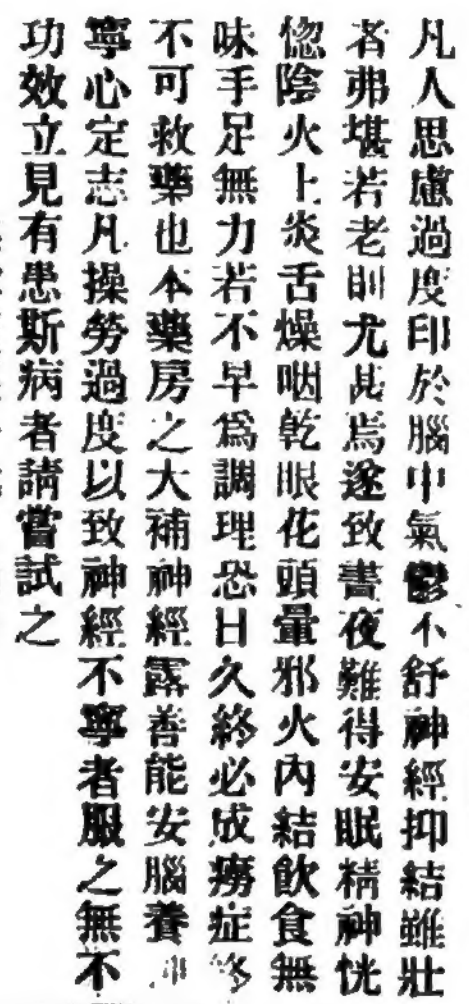 凡人思慮過度印於腦中氣鬱不舒神經抑結雖壯
者弗堪若老則尤甚焉遂致晝夜難得安眠精神恍
惚陰火上炎舌燥咽乾眼花頭暈邪火內結飲食無
味手足無力若不早為調理恐日久終必成癆症
不可救藥也本藥房之大補神經露善能安腦養
寧心定志凡操勞過度以致神經不寧者服之無不
功效立見有患斯病者請嘗試之